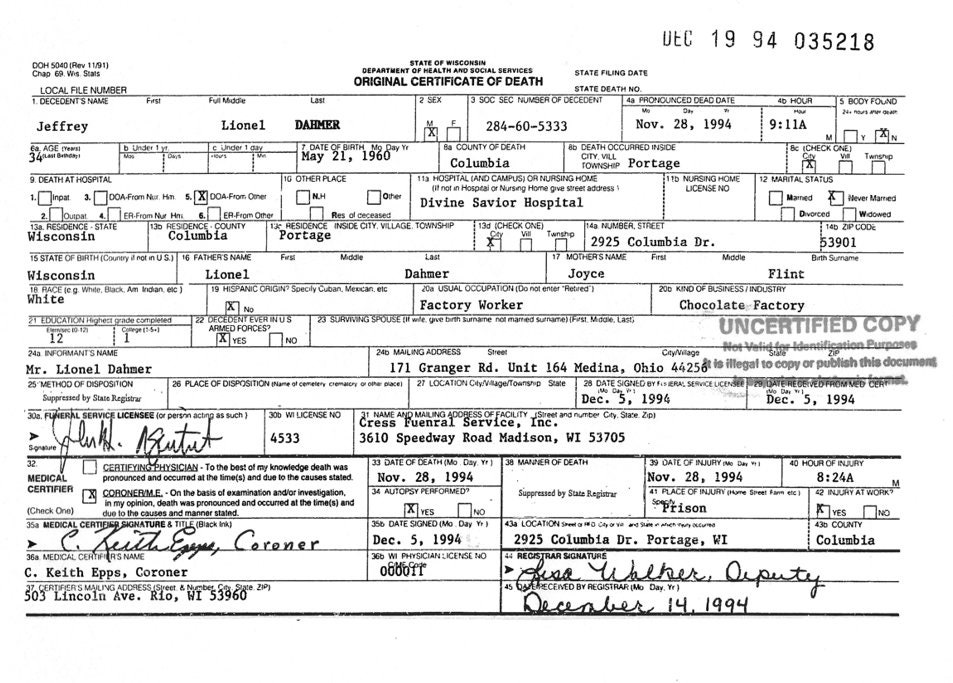 DEC 19 94 035218
DOH 5040 (Rev 11/91)
Chap 69. Wis. Stats
STATE OF WISCONSIN
DEPARTMENT OF HEALTH AND SOCIAL SERVICES
ORIGINAL CERTIFICATE OF DEATH
STATE FILING DATE
LOCAL FILE NUMBER
STATE DEATH NO.
1. DECEDENT'S NAME First Full Middle Last 2 SEX 3 SOC SEC NUMBER OF DECEDENT 4a PRONOUNCED DEAD DATE 4b HOUR 5 BODY FOUND
M F Mo Day Yr Hour 24+ hours after death
Jeffrey Lionel DAHMER X 284-60-5333 Nov. 28, 1994 9:11A M Y X N
6a. AGE (Years) b Under 1 yr. c Under 1 day 7 DATE OF BIRTH Mo Day Yr 8a COUNTY OF DEATH 8b DEATH OCCURRED INSIDE 8c (CHECK ONE)
34 (Last Birthday) Mos Days Hours Min May 21, 1960 Columbia CITY, VILL TOWNSHIP Portage City X Vill Township
9. DEATH AT HOSPITAL 10 OTHER PLACE 11a HOSPITAL (AND CAMPUS) OR NURSING HOME 11b NURSING HOME 12 MARITAL STATUS
(If not in Hospital or Nursing Home give street address) LICENSE NO
1. Inpat. 3. DOA-From Nur. Hm. 5. X DOA-From Other N.H Other Divine Savior Hospital Married X Never Married
2. Outpat. 4. ER-From Nur. Hm. 6. ER-From Other Res of deceased Divorced Widowed
13a. RESIDENCE - STATE 13b RESIDENCE - COUNTY 13c RESIDENCE INSIDE CITY, VILLAGE, TOWNSHIP 13d (CHECK ONE) 14a NUMBER, STREET 14b ZIP CODE
Wisconsin Columbia Portage City X Vill Township 2925 Columbia Dr. 53901
15 STATE OF BIRTH (Country if not in U.S.) 16 FATHER'S NAME First Middle Last 17 MOTHER'S NAME First Middle Birth Surname
Wisconsin Lionel Dahmer Joyce Flint
18. RACE (e.g. White, Black, Am Indian, etc.) 19 HISPANIC ORIGIN? Specify Cuban, Mexican, etc 20a USUAL OCCUPATION (Do not enter "Retired") 20b KIND OF BUSINESS / INDUSTRY
White X No Factory Worker Chocolate Factory
21 EDUCATION Highest grade completed 22 DECEDENT EVER IN U S ARMED FORCES? 23 SURVIVING SPOUSE (If wife, give birth surname not married surname) (First, Middle, Last)
Elem/sec (0-12) College (1-5+)
12 1 X YES NO
UNCERTIFIED COPY
Not Valid for Identification Purposes
It is illegal to copy or publish this document
24a INFORMANT'S NAME 24b MAILING ADDRESS Street City/Village State ZIP
Mr. Lionel Dahmer 171 Granger Rd. Unit 164 Medina, Ohio 44256
25 METHOD OF DISPOSITION 26 PLACE OF DISPOSITION (Name of cemetery, crematory or other place) 27 LOCATION City/Village/Township State 28 DATE SIGNED BY FUNERAL SERVICE LICENSEE 29 DATE RECEIVED FROM MED CERT
Suppressed by State Registrar (Mo Day, Yr) Dec. 5, 1994 (Mo Day, Yr) Dec. 5, 1994
30a. FUNERAL SERVICE LICENSEE (or person acting as such) 30b WI LICENSE NO 31 NAME AND MAILING ADDRESS OF FACILITY (Street and number City, State, Zip)
Signature 4533 Cress Fuenral Service, Inc.
3610 Speedway Road Madison, WI 53705
32. MEDICAL CERTIFIER (Check One)
CERTIFYING PHYSICIAN - To the best of my knowledge death was pronounced and occurred at the time(s) and due to the causes stated.
X CORONER/M.E. - On the basis of examination and/or investigation, in my opinion, death was pronounced and occurred at the time(s) and due to the causes and manner stated.
33 DATE OF DEATH (Mo. Day, Yr) 38 MANNER OF DEATH 39 DATE OF INJURY (Mo Day, Yr) 40 HOUR OF INJURY
Nov. 28, 1994 Suppressed by State Registrar Nov. 28, 1994 8:24A M
34 AUTOPSY PERFORMED? 41 PLACE OF INJURY (Home Street Farm etc) 42 INJURY AT WORK?
X YES NO Specify Prison X YES NO
35a MEDICAL CERTIFIER SIGNATURE & TITLE (Black Ink) 35b DATE SIGNED (Mo. Day, Yr) 43a LOCATION 43b COUNTY
C. Keith Epps, Coroner Dec. 5, 1994 2925 Columbia Dr. Portage, WI Columbia
36a. MEDICAL CERTIFIER'S NAME 36b WI PHYSICIAN LICENSE NO 44 REGISTRAR SIGNATURE
C. Keith Epps, Coroner 000011 Lisa Walker, Deputy
37 CERTIFIER'S MAILING ADDRESS (Street, & Number, City, State, ZIP) 45 DATE RECEIVED BY REGISTRAR (Mo Day, Yr)
503 Lincoln Ave. Rio, WI 53960 December 14, 1994